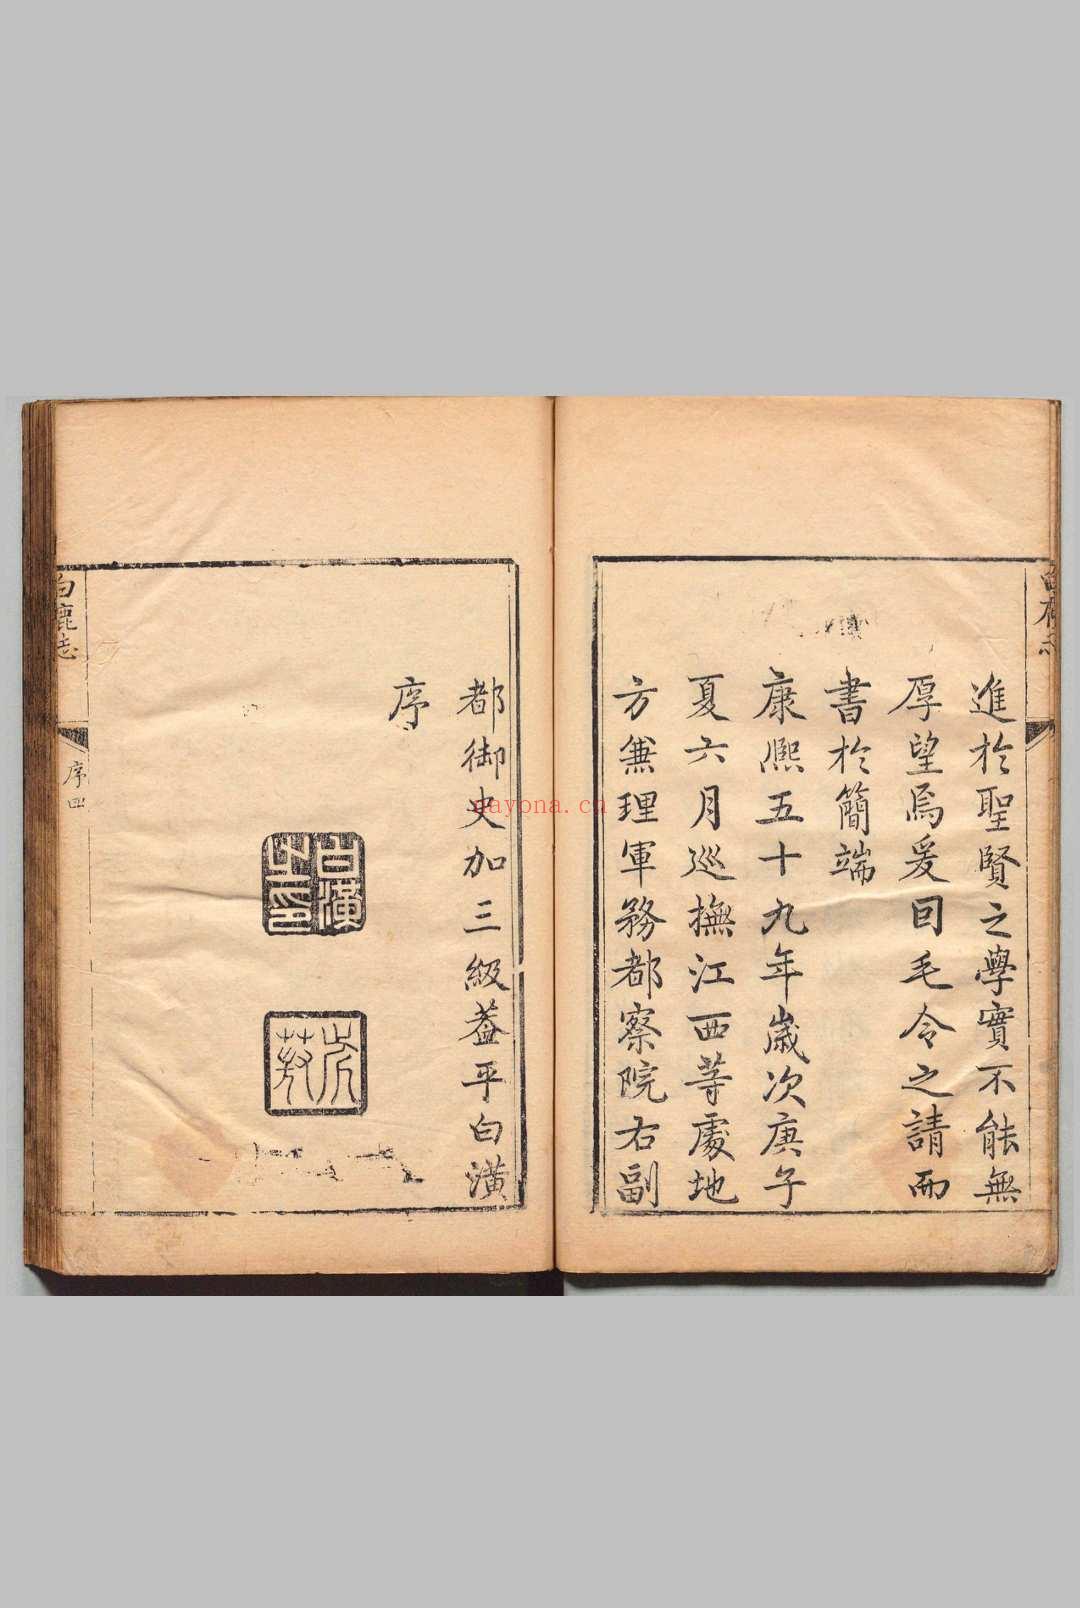 進於聖賢之學實不能無
厚望焉爰因毛令之請而
書於簡端
康熙五十九年歲次庚子
夏六月巡撫江西等處地
方兼理軍務都察院右副
都御史加三級蓋平白潢
序
白潢之印
白鹿志
序四
nayona.cn